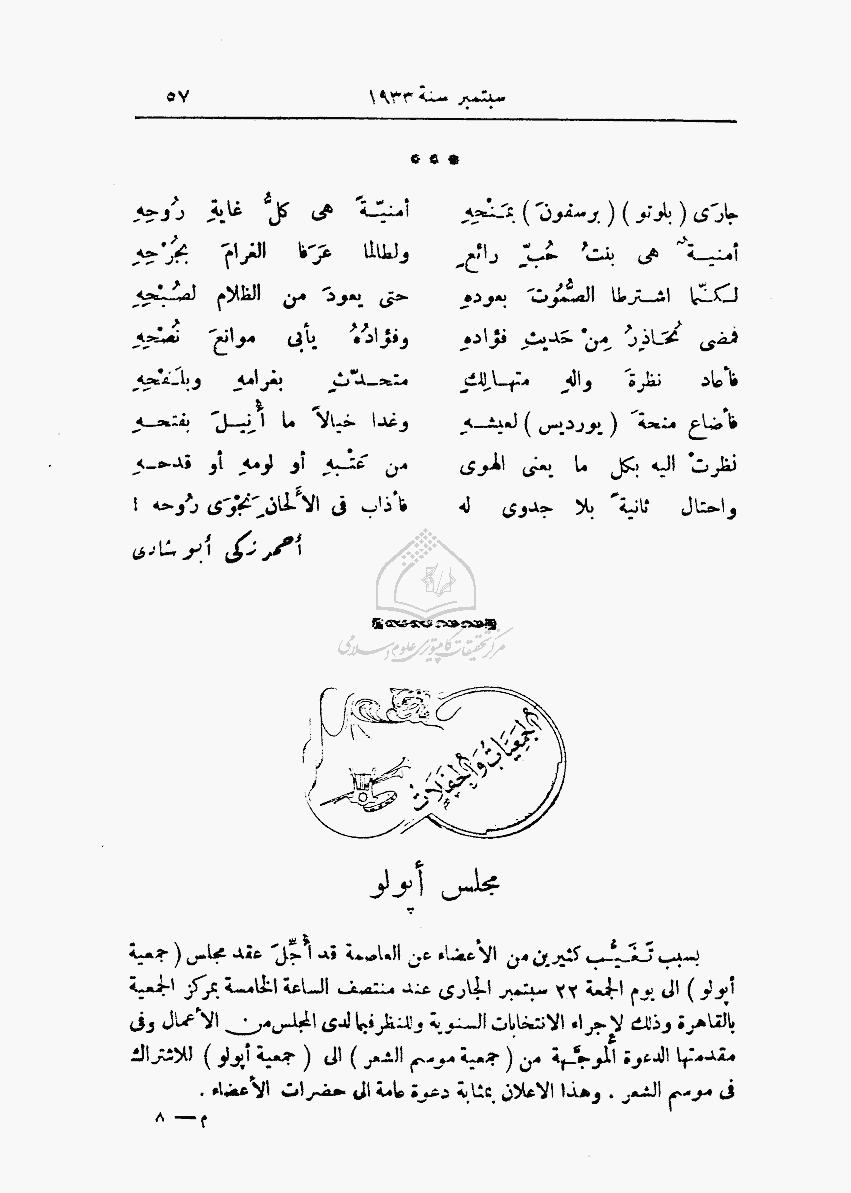 سبتمبر سنة ١٩٣٣ ٥٧
جارَى (بلوتو) (برسفونَ) بمَنْحِهِ أمنيّةً هى كلُّ غايةِ رُوحِهِ
أمنيةٌ هى بنتُ حُبٍّ رائعٍ ولطالما عَرَفا الغرامَ بجُرْحِهِ
لكنّما اشترطا الصُّمُوتَ بعودهِ حتى يعودَ من الظلام لصُبْحِهِ
فمضى يُحَاذِرُ مِنْ حَديثِ فؤادهِ وفؤادُهُ يأبى موانعَ نُصْحِهِ
فأعاد نظرةَ والهٍ متهالِكٍ متحدّثٍ بغرامهِ وبلَفْحِهِ
فأضاع منحةَ (يورديس) لعيشهِ وغدا خيالاً ما أُنِيلَ بفتحهِ
نظرتْ اليه بكل ما يعنى الهوى من عَتْبهِ أو لومهِ أو قدحهِ
واحتال ثانيةً بلا جدوى له فأذاب فى الألحانِ نَجْوَى رُوحه !
أحمد زكى أبو شادى
مركز تحقيقات كامپيوترى علوم اسلامى
الجمعيات والحفلات
مجلس أپولو
بسبب تَغَيُّب كثيرين من الأعضاء عن العاصمة قد أُجِّلَ عقد مجلس (جمعية
أپولو) الى يوم الجمعة ٢٢ سبتمبر الجارى عند منتصف الساعة الخامسة بمركز الجمعية
بالقاهرة وذلك لإجراء الانتخابات السنوية وللنظر فيما لدى المجلس من الأعمال وفى
مقدمتها الدعوة المُوجَّهة من (جمعية موسم الشعر) الى (جمعية أپولو) للاشتراك
فى موسم الشعر . وهذا الاعلان بمثابة دعوة عامة الى حضرات الأعضاء .
م — ٨